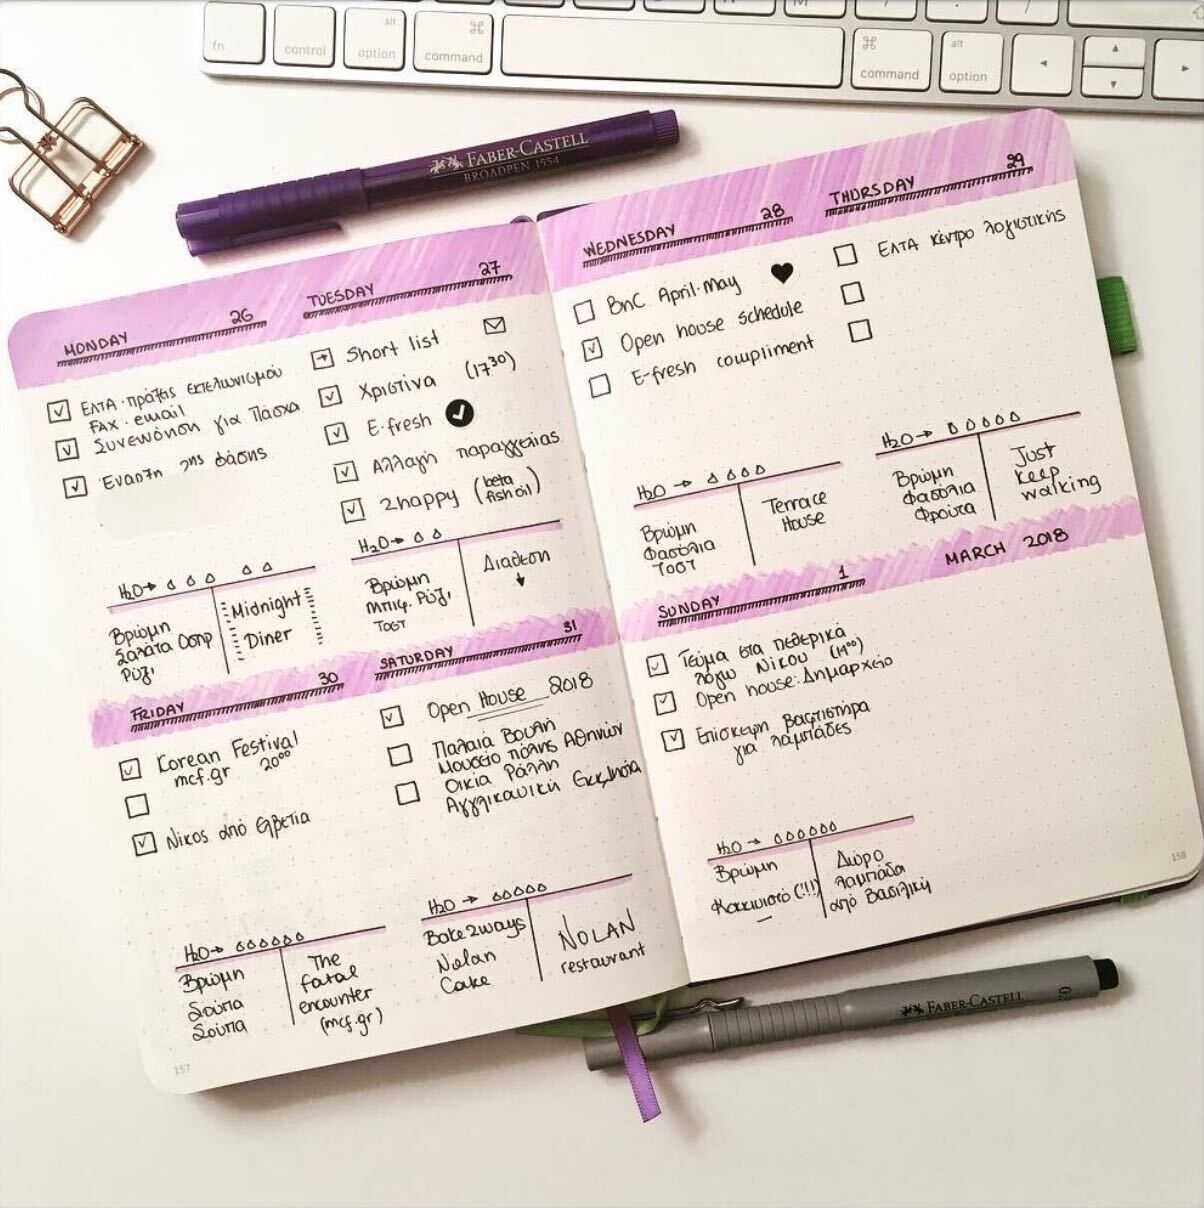 fn
control
alt
option
⌘
command
⌘
command
alt
option
FABER-CASTELL
BROADPEN 1554
MONDAY 26
ΕΛΤΑ · πράξης εκτελωνισμού
FAX · email
Συνεννόηση για Πάσχα
Έναρξη 2ης φάσης
H₂O→
Βρώμη
Σαλάτα Οσπρ
Ρύζι
Midnight
Diner
TUESDAY 27
Short list
Χριστίνα (17³⁰)
E-fresh
Αλλαγή παραγγελίας
2happy (beta
fish oil)
H₂O→
Βρώμη
Μπιφ. Ρύζι
Τοστ
Διάθεση
↓
WEDNESDAY 28
BnC April-May
Open house schedule
E-fresh compliment
H₂O→
Βρώμη
Φασόλια
Τοστ
Terrace
House
THURSDAY 29
ΕΛΤΑ κέντρο λογιστικής
H₂O→
Βρώμη
Φασόλια
Φρούτα
Just
keep
walking
FRIDAY 30
Korean Festival
mcf.gr 20⁰⁰
Νίκος από Ελβετία
H₂O→
Βρώμη
Σούπα
Σούπα
The
fatal
encounter
(mcf.gr)
SATURDAY 31
Open House 2018
Παλαιά Βουλή
Μουσείο πόλης Αθηνών
Οικία Ράλλη
Αγγλικανική Εκκλησία
H₂O →
Bake2ways
Nolan
Cake
NOLAN
restaurant
SUNDAY 1
MARCH 2018
Γεύμα στα πεθερικά
λόγω Νίκου (14⁰⁰)
Open house: Δημαρχείο
Επίσκεψη βαφτιστήρα
για λαμπάδες
H₂O →
Βρώμη
Κοκκινιστό (!!!)
Δώρο
λαμπάδα
από Βασιλική
157
158
FABER-CASTELL